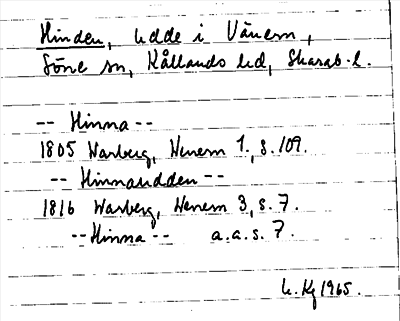 Hinden, udde i Vänern,
Söne sn, Kållands hd, Skarab. l.
-- Hinna --
1805 Warberg, Wenern 1, s. 109.
-- Hinnaudden --
1816 Warberg, Wenern 3, s. 7.
-- Hinna -- a.a.s. 7.
1965.